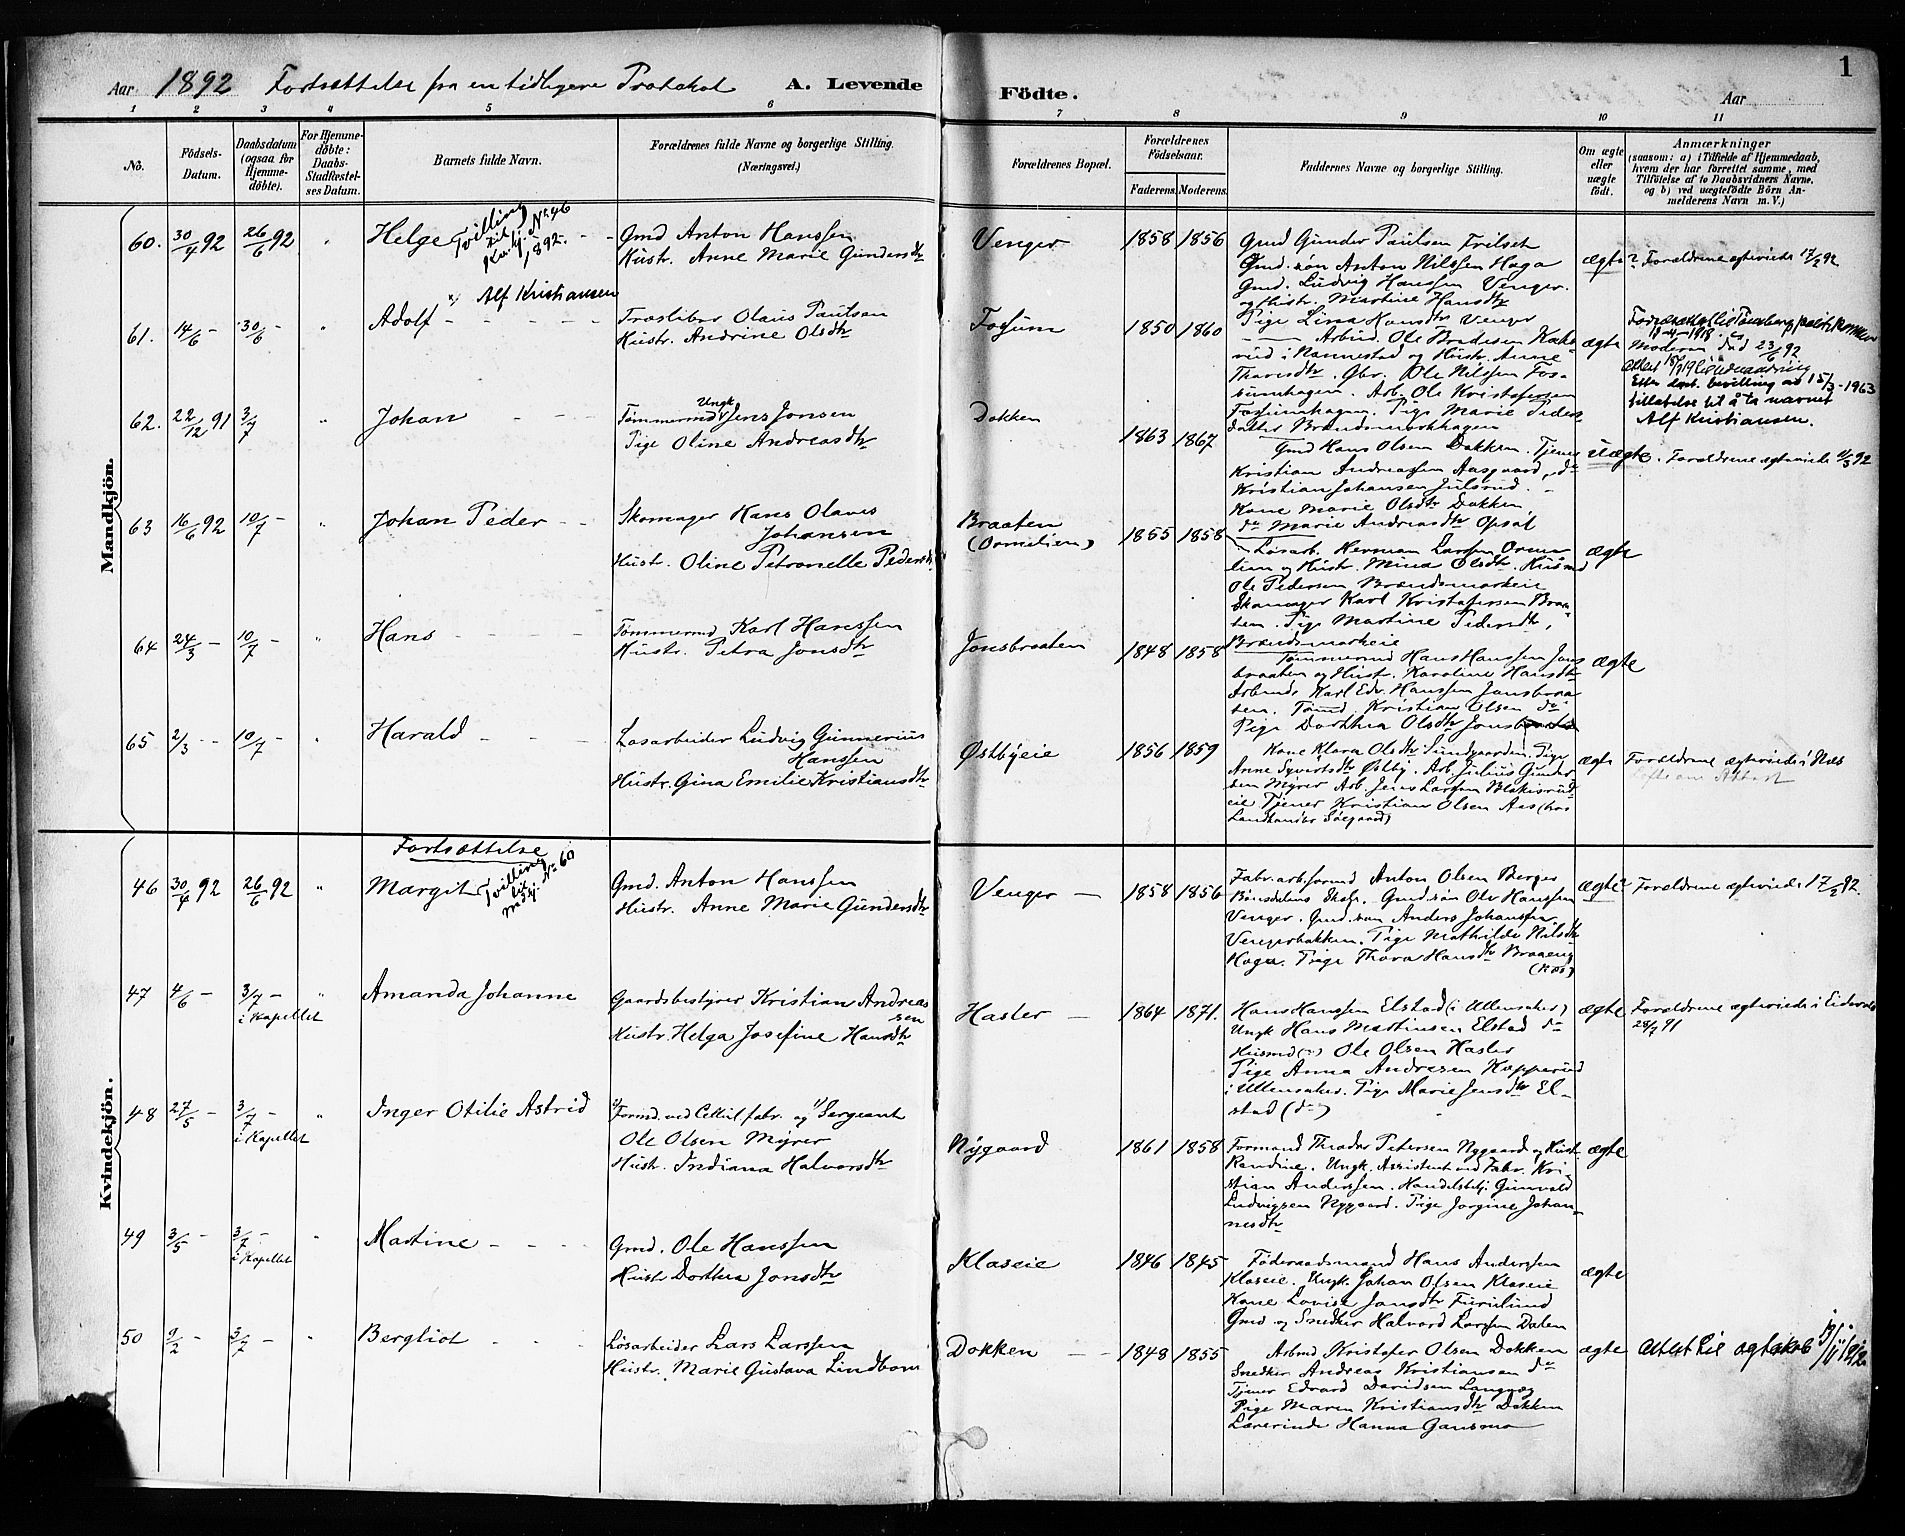 1
Aar 1892 Fortsættelse fra en tidligere Protokol A. Levende Födte. Aar
1 2 3 4 5 6 7 8 9 10 11
No.
Födsels-
Datum.
Daabsdatum
(ogsaa for
Hjemme-
döbte).
For Hjemme-
döbte:
Daabs-
Stadfæstel-
ses Datum.
Barnets fulde Navn.
Forældrenes fulde Navne og borgerlige Stilling.
(Næringsvei.)
Forældrenes Bopæl.
Forældrenes
Födselsaar.
Faderens. Moderens.
Faddernes Navne og borgerlige Stilling.
Om ægte
eller
uægte
födt.
Anmærkninger
(saasom: a) i Tilfælde af Hjemmedaab,
hvem der har forrettet samme, med
Tilföielse af to Daabsvidners Navne,
og b) ved uægtefödte Börn An-
melderens Navn m. V.)
Mandkjön.
60. 30/4 92 26/6 92 " Helge
Tvilling
til
Kvkj. No 46
1892.
Gmd Anton Hanssen
Hustr. Anne Marie Gundersdtr
Venger 1858 1856
Gmd Gunder Paulsen Frilset
Gmd. søn Anton Nilssen Haga
Gmd. Ludvig Hanssen Venger
og Hustr. Martine Hansdtr
Pige Lina Hansdtr Venger
ægte? Forældrene ægteviede 17/2 92
61. 14/6 - 30/6 - " Adolf
Alf Kristiansen
Træsliber Olaus Paulsen
Hustr. Andrine Olsdtr
Fossum 1850 1860
Arbmd. Ole Bredesen Kaks-
rud i Nannestad og Hustr. Anne
Thorsdtr. Gbr. Ole Nilssen Fos-
sumhagen. Arb. Ole Kristofersen
Fossumhagen. Pige Marie Peders-
datter Brændsmorkhagen
ægte
Moderen död 23/6 92
Etter dept. bevilling av 15/3-1963
tillatelse til å ta navnet
Alf Kristiansen.
62. 22/12 91 3/7 " Johan
Tømmermd Ungk. Jens Jonsen
Pige Oline Andreasdtr
Dokken 1863 1867
Gmd Hans Olsen Dokken. Tjener
Kristian Andreassen Aasgaard, do
Kristian Johansen Julsrud.
Kone Marie Olsdtr Dokken,
do Marie Andreasdtr Opsal
uægte. Forældrene ægteviede 11/3 92
63 16/6 92 10/7 - " Johan Peder
Skomager Hans Olaves
Johansen
Hustr. Oline Petronelle Pedersdtr
Braaten
(Ormlien) 1865 1858
Løsarb. Herman Larsen Orm-
lien og Hustr. Mina Olsdtr. Husmd
Ole Pedersen Brændsmorkeie
Skomager Karl Kristofersen Braa-
ten. Pige Martine Pedersdtr,
Brændsmorkeie
ægte
64 24/3 - 10/7 - " Hans
Tømmermd Karl Hanssen
Hustr. Petra Jonsdtr
Jonsbraaten 1848 1858
Tømmermd Hans Hanssen Jons-
braaten og Hustr. Karoline Hansdtr
Arbmd. Karl Edv. Hanssen Jonsbraa-
ten. Tømd. Kristian Olsen do
Pige Dorthea Olsdtr Jonsbraaten
ægte
65 2/3 - - 10/7 - " Harald
Løsarbeider Ludvig Gunnerius
Hanssen
Hustr. Gina Emilie Kristiansdtr
Østbyeie 1856 1859
Kone Klara Olsdtr Sundgaarden. Pige
Anne Syvertsdtr Østby. Arb. Julius Gunder-
sen Myrer Arb. Jens Larsen Blakisrud-
eie Tjener Kristian Olsen Aas (hos
Landhandler Søegaard)
ægte Forældrene ægteviede i Næs
Kvindekjön.
Fortsættelse
46 30/4 92 26/6 92 " Margit
Tvilling
til
mdkj. No 60
Gmd. Anton Hanssen
Hustr. Anne Marie Gundersdtr
Venger - 1858 1856
Fabr. arb. formd Anton Olsen Berger
Bönsdalens Skole. Gmd søn Ole Hanssen
Venger. Gmd. søn Anders Johanssen
Vengerbakken. Pige Mathilde Nilsdtr
Haga. Pige Thora Hansdtr Braaeng
(Næs)
ægte? Forældrene ægteviede 17/2 92.
47 4/6 - 3/7 - " Amanda Johanne
i Kapellet
Gaardsbestyrer Kristian Andreas-
sen
Hustr. Helga Josefine Hansdtr
Hasler - 1864 1871.
Hans Hanssen Elstad (i Ullensaker)
Ungk Hans Martinsen Elstad do
Husmd (") Ole Olsen Hasler
Pige Anna Andresen Kopperud
i Ullensaker. Pige Marie Jensdtr El-
stad (do)
ægte Forældrene ægteviede i Eidsvold
28/7 91
48 27/5 - 3/7 - " Inger Otilie Astrid
i Kapellet
Formd. ved Cellul. fabr. og Sergeant
Ole Olsen Myrer
Hustr. Indiana Halvorsdtr
Nygaard 1861 1858
Formand Theodor Petersen Nygaard og Hustr.
Randine. Ungk. Assistent ved Fabr. Kri-
stian Anderssen. Handelsbtj. Gunvald
Ludvigsen Nygaard. Pige Jørgine Johan-
nesdtr
ægte
49 3/5 - 3/7 - " Martine
i Kapellet
Gmd. Ole Hanssen
Hustr Dorthea Jonsdtr
Klaseie 1846 1845
Föderaadsmand Hans Anderssen
Klaseie. Ungk. Johan Olsen Klaseie
Kone Lovise Jonsdtr Furulund
Gmd og Snedker Halvord Larssen Dalen
ægte
50 9/2 - 3/7 - " Bergliot
Løsarbeider Lars Larssen
Hustr. Marie Gustava Lindbom
Dokken - - 1848 1855
Arbmd Kristofer Olsen Dokken
Snedker Andreas Kristiansen do
Tjener Edvard Davidsen Langvæg
Pige Maren Kristiansdtr Dokken
Lærerinde Hanna Gansmo
ægte Attest til ægteskab